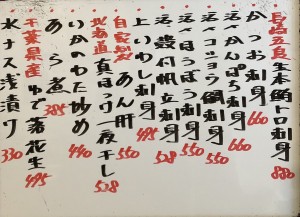 長崎五島生本鮪トロ刺身 880
かつお刺身 660
活〆かんぱち刺身 660
活〆ほうぼう刺身 550
活〆コショウ鯛刺身 550
活〆殻付帆立刺身 528
上いわし刺身 495
自家製あん肝 550
北海道真ほっけ一夜干し 528
いかのわた炒め 440
あら煮 385
千葉県産ゆで落花生 495
水ナス浅漬け 330